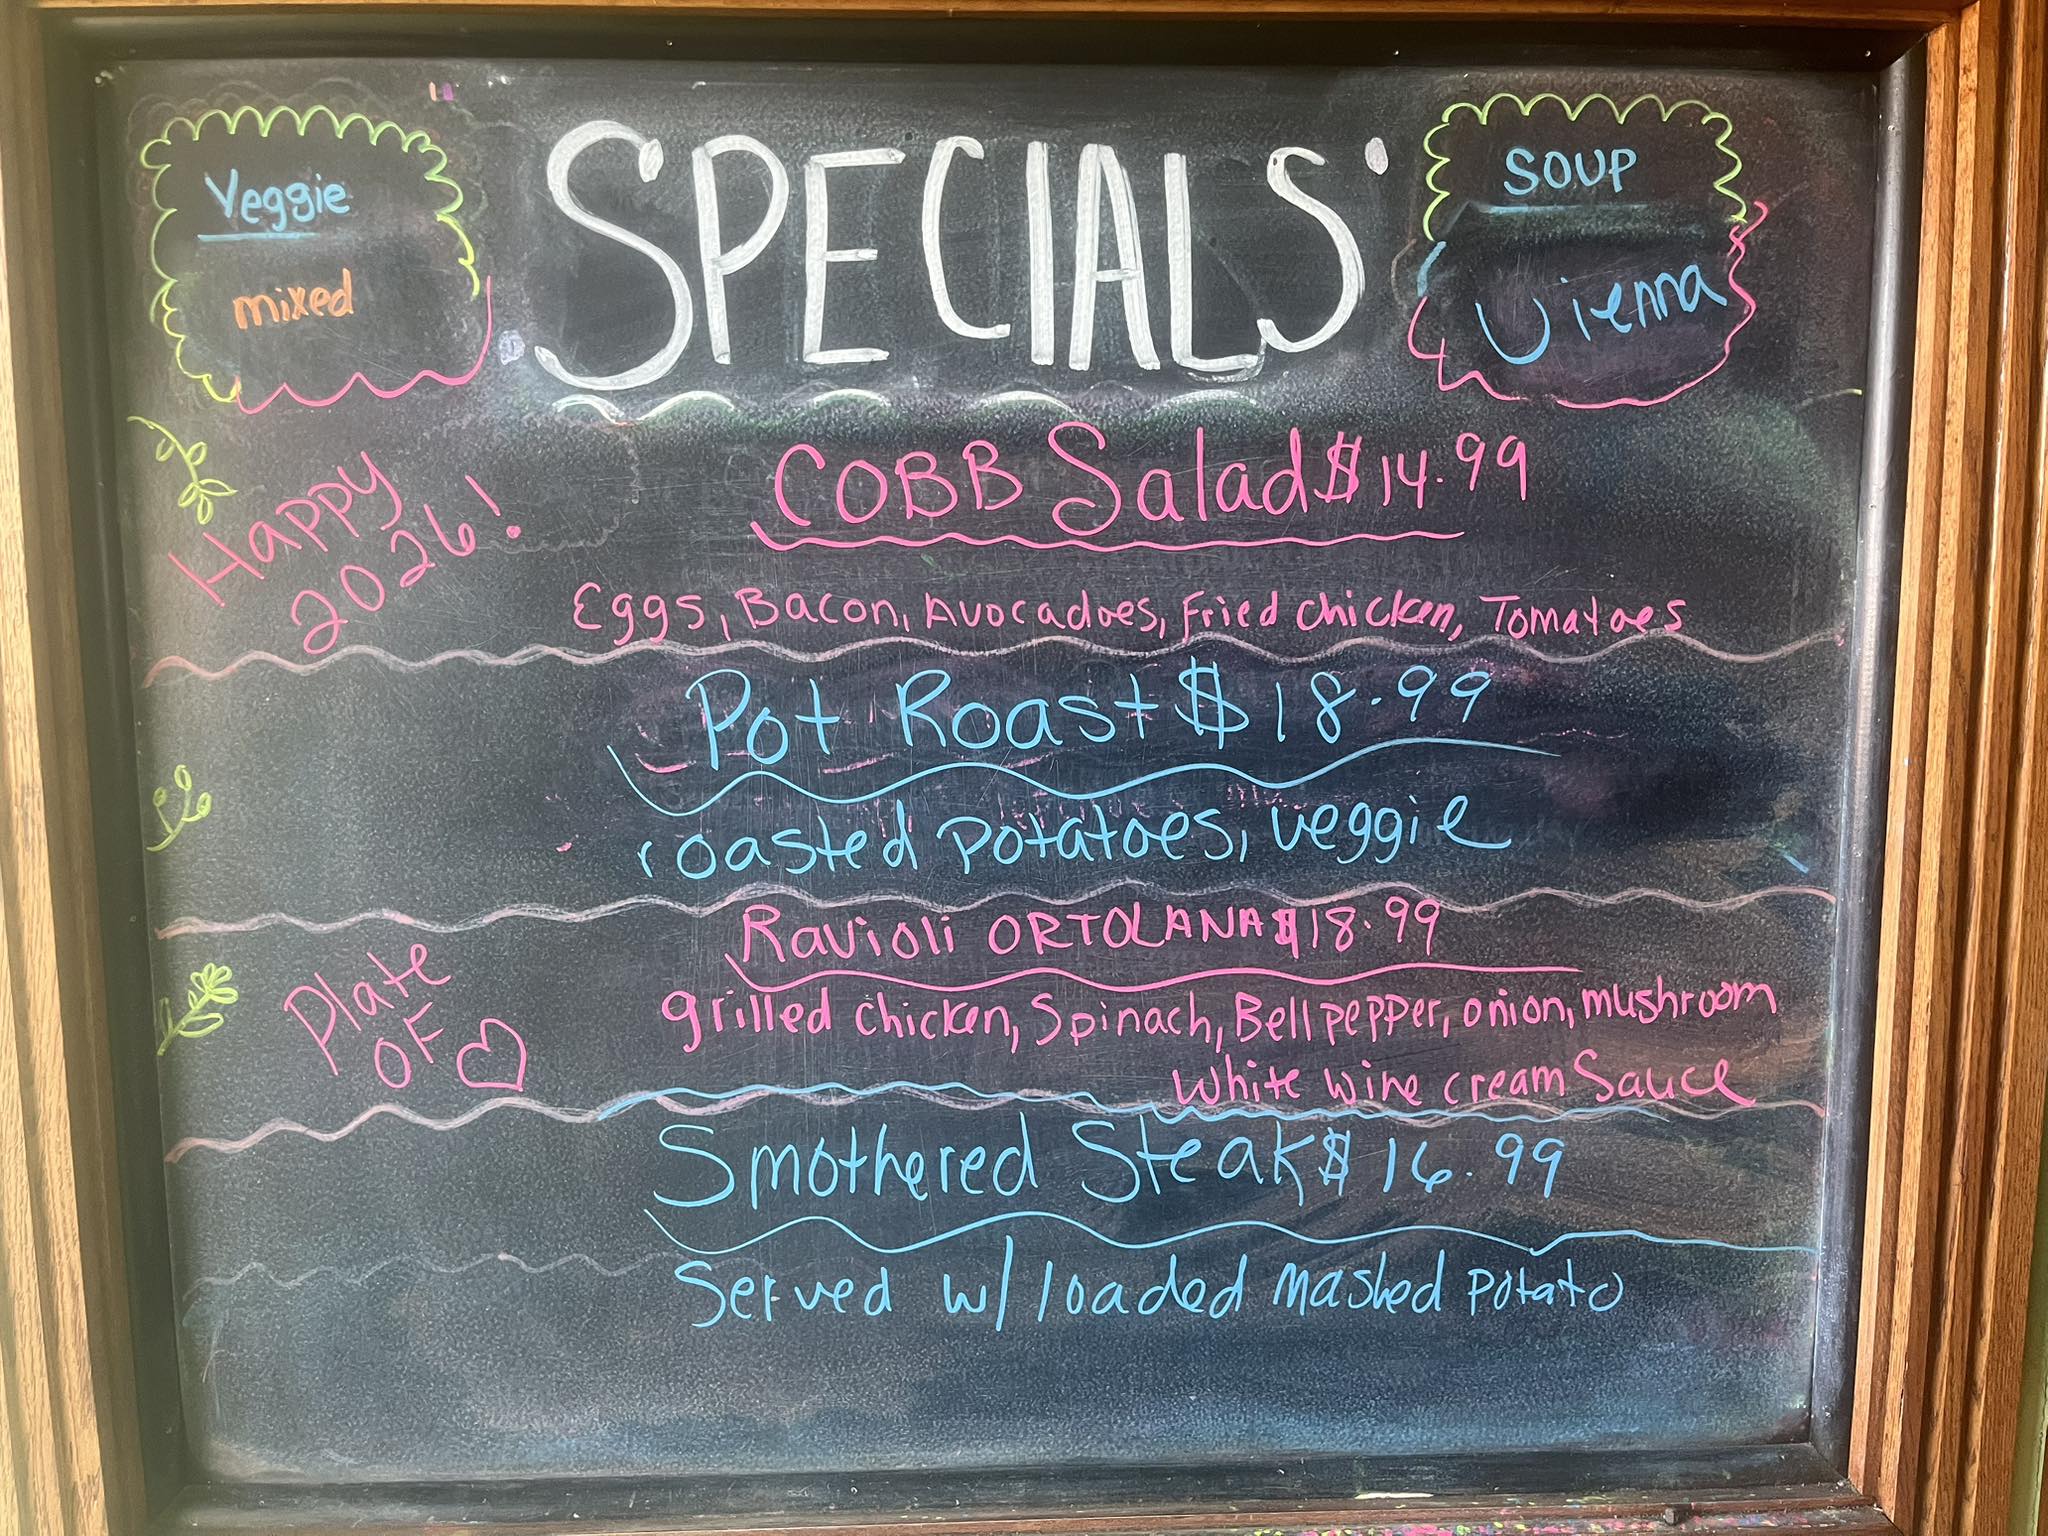 Veggie
mixed
SPECIALS
SOUP
Vienna
Happy
2026!
COBB Salad $14.99
Eggs, Bacon, Avocadoes, Fried chicken, Tomatoes
Pot Roast $18.99
roasted potatoes, veggie
Plate
OF
Ravioli ORTOLANA $18.99
grilled chicken, Spinach, Bell pepper, onion, mushroom
white wine cream Sauce
Smothered Steak $16.99
Served w/ loaded mashed potato